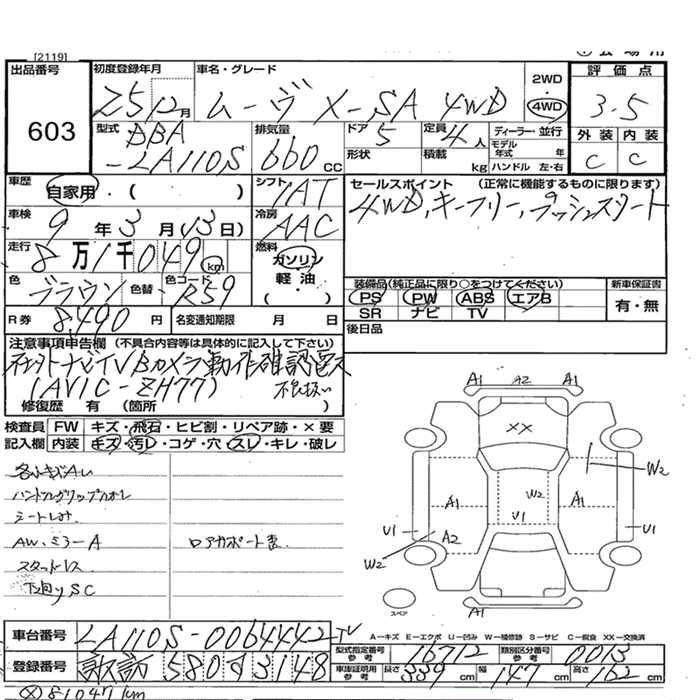 [2119]
出品番号
603
初度登録年月
25 12月
車名・グレード
ムーヴ X-SA 4WD
2WD
・
4WD
評価点
3.5
外装 内装
C C
型式
DBA
-LA110S
排気量
660 CC
ドア
5
形状
定員
4人
積載 kg
ディーラー・並行
モデル年式 年
ハンドル 左・右
車歴
自家用・( )
シフト
IAT
セールスポイント (正常に機能するものに限ります)
4WD、キーフリー、プッシュスタート
車検
9年3月(13日)
冷房
AAC
走行
8万1千049 km
燃料
ガソリン
軽油・
( )
色
ブラウン
色替
・
色コード
R59
装備品(純正品に限り○をつけてください)
PS PW ABS エアB
SR ナビ TV
新車保証書
有・無
R券 8,490円
名変通知期限 月 日
後日品
注意事項申告欄 (不具合内容等は具体的に記入して下さい)
社外ナビTVBカメラ動作確認
(AVIC-ZH77)
不良扱い
修復歴 有 (箇所 )
検査員
記入欄
FW キズ・飛石・ヒビ割・リペア跡・×要
内装 キズ・汚レ・コゲ・穴・スレ・キレ・破レ
ハンドルグリップ
シートしみ
AW、ミラーA
スタッドレス
下廻りSC
A1 A2 A1
XX
W2
A1
W2
A1
U1
U1
A2
U1
W2
A1
スペア
A－キズ E－エクボ U－凹み W－補修跡 S－サビ C－腐食 XX－交換済
車台番号 LA110S-0064442
型式指定番号
参考
16712
類別区分番号
参考
0013
登録番号 諏訪 580 3148
車庫証明用
参考
長さ 339 幅 147 高さ 162 cm
81047km